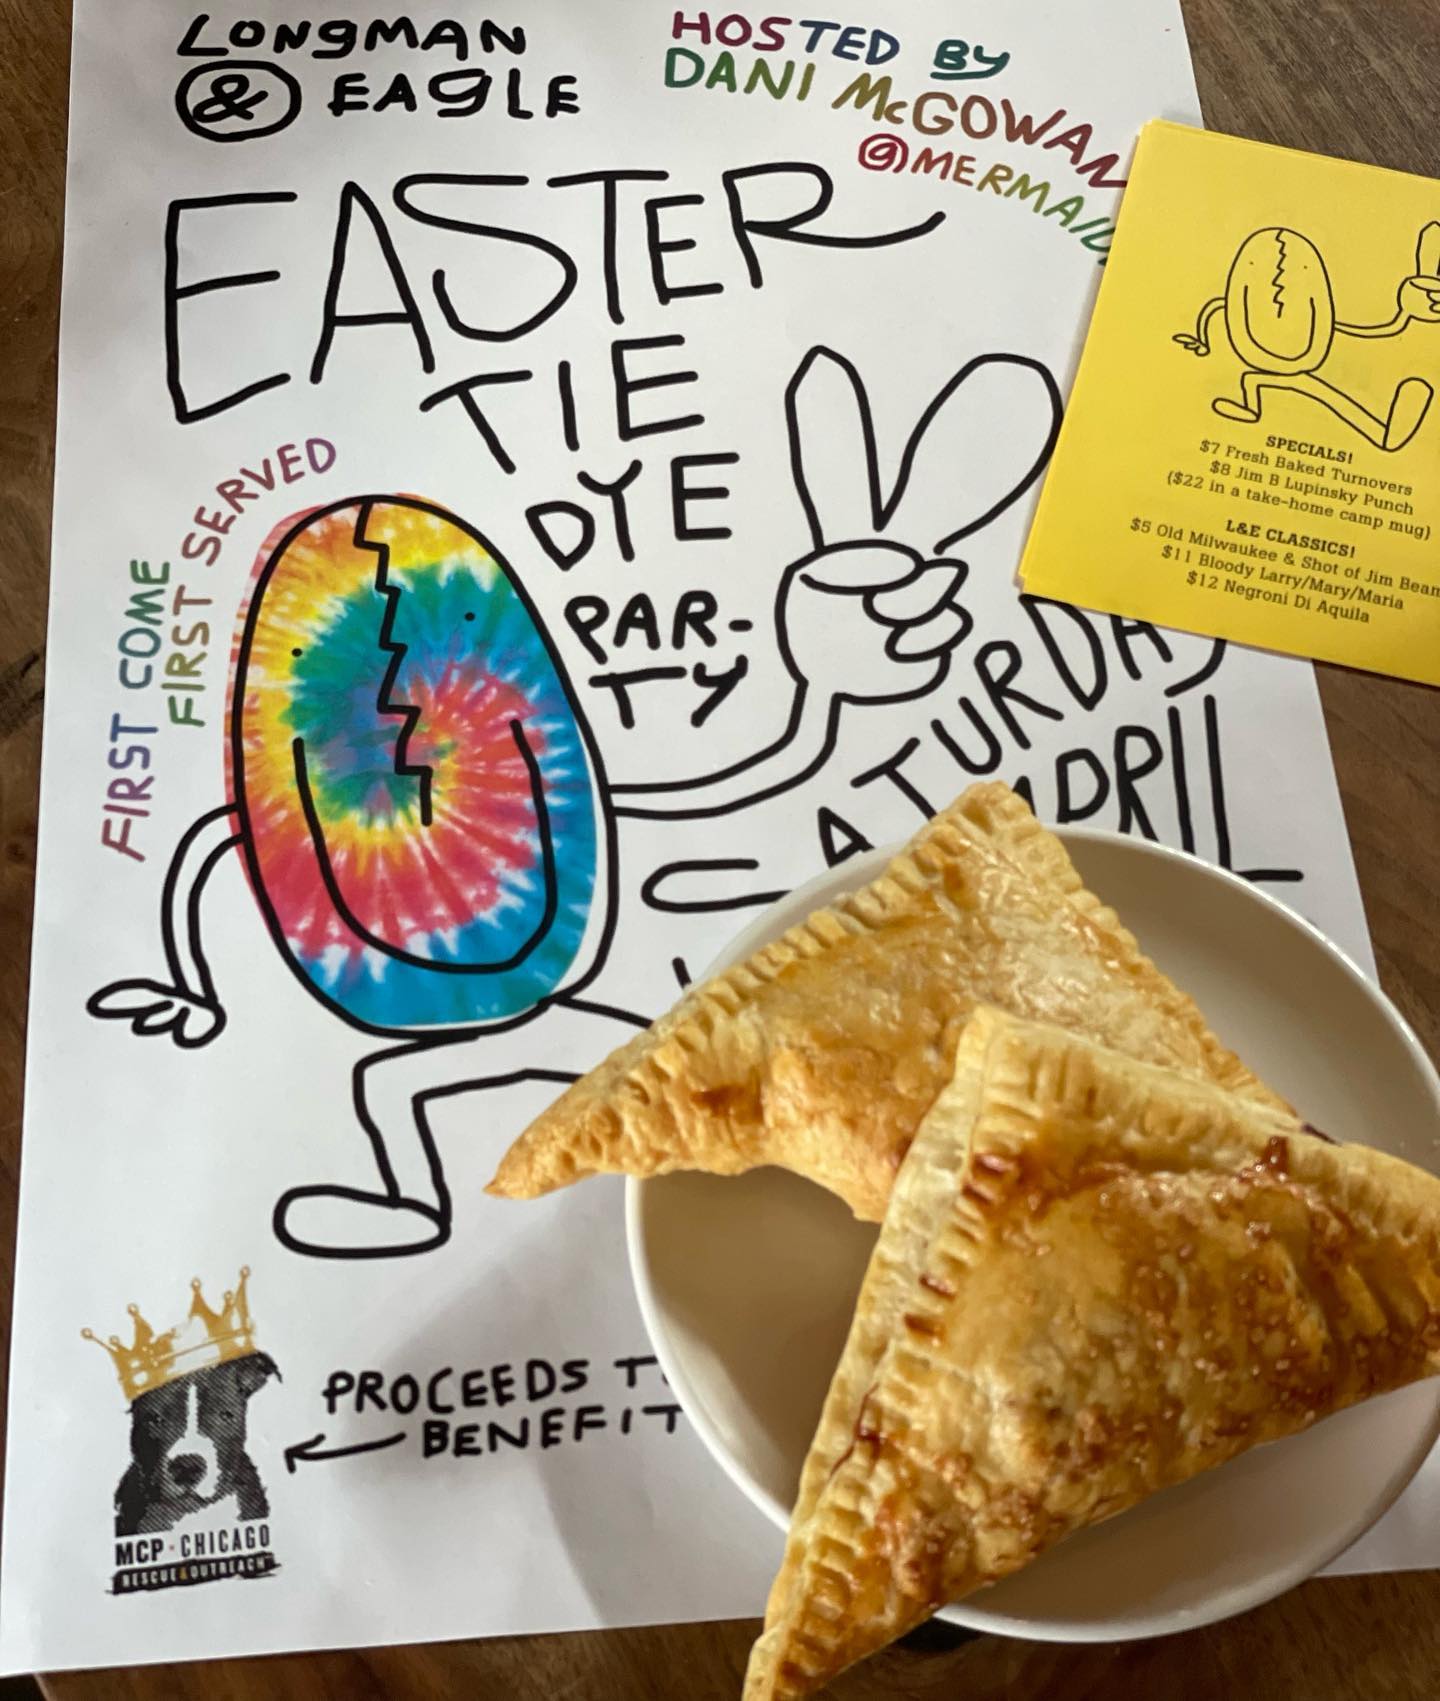 LONGMAN
& EAGLE
HOSTED BY
DANI McGOWAN
@MERMAID
EASTER
TIE
DYE
PAR-
TY
FIRST COME
FIRST SERVED
APRIL
PROCEEDS
BENEFIT
MCP·CHICAGO
RESCUE & OUTREACH
SPECIALS!
$7 Fresh Baked Turnovers
$8 Jim B Lupinsky Punch
($22 in a take-home camp mug)
L&E CLASSICS!
$5 Old Milwaukee & Shot of Jim Beam
$11 Bloody Larry/Mary/Maria
$12 Negroni Di Aquila